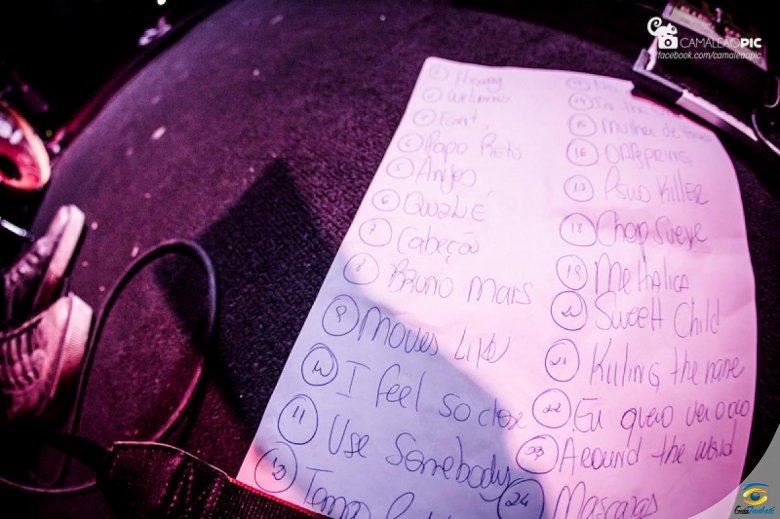 CAMALEÃOPIC
facebook.com/camaleaopic
1 Higway
2 Welcome
3
4 Papo Reto
5 Anjos
6 Qualé
7 Cabeção
8 Bruno Mars
9 Moves Like
10 I feel so close
11 Use Somebody
12
13
14 In the
15 Mulher de
16 Offspring
17 Psico Killer
18 Chop Sueye
19 Methalica
20 Sweett Child
21 Kuling the name
22 Eu quero ver o oco
23 Around the world
24 Mascaras